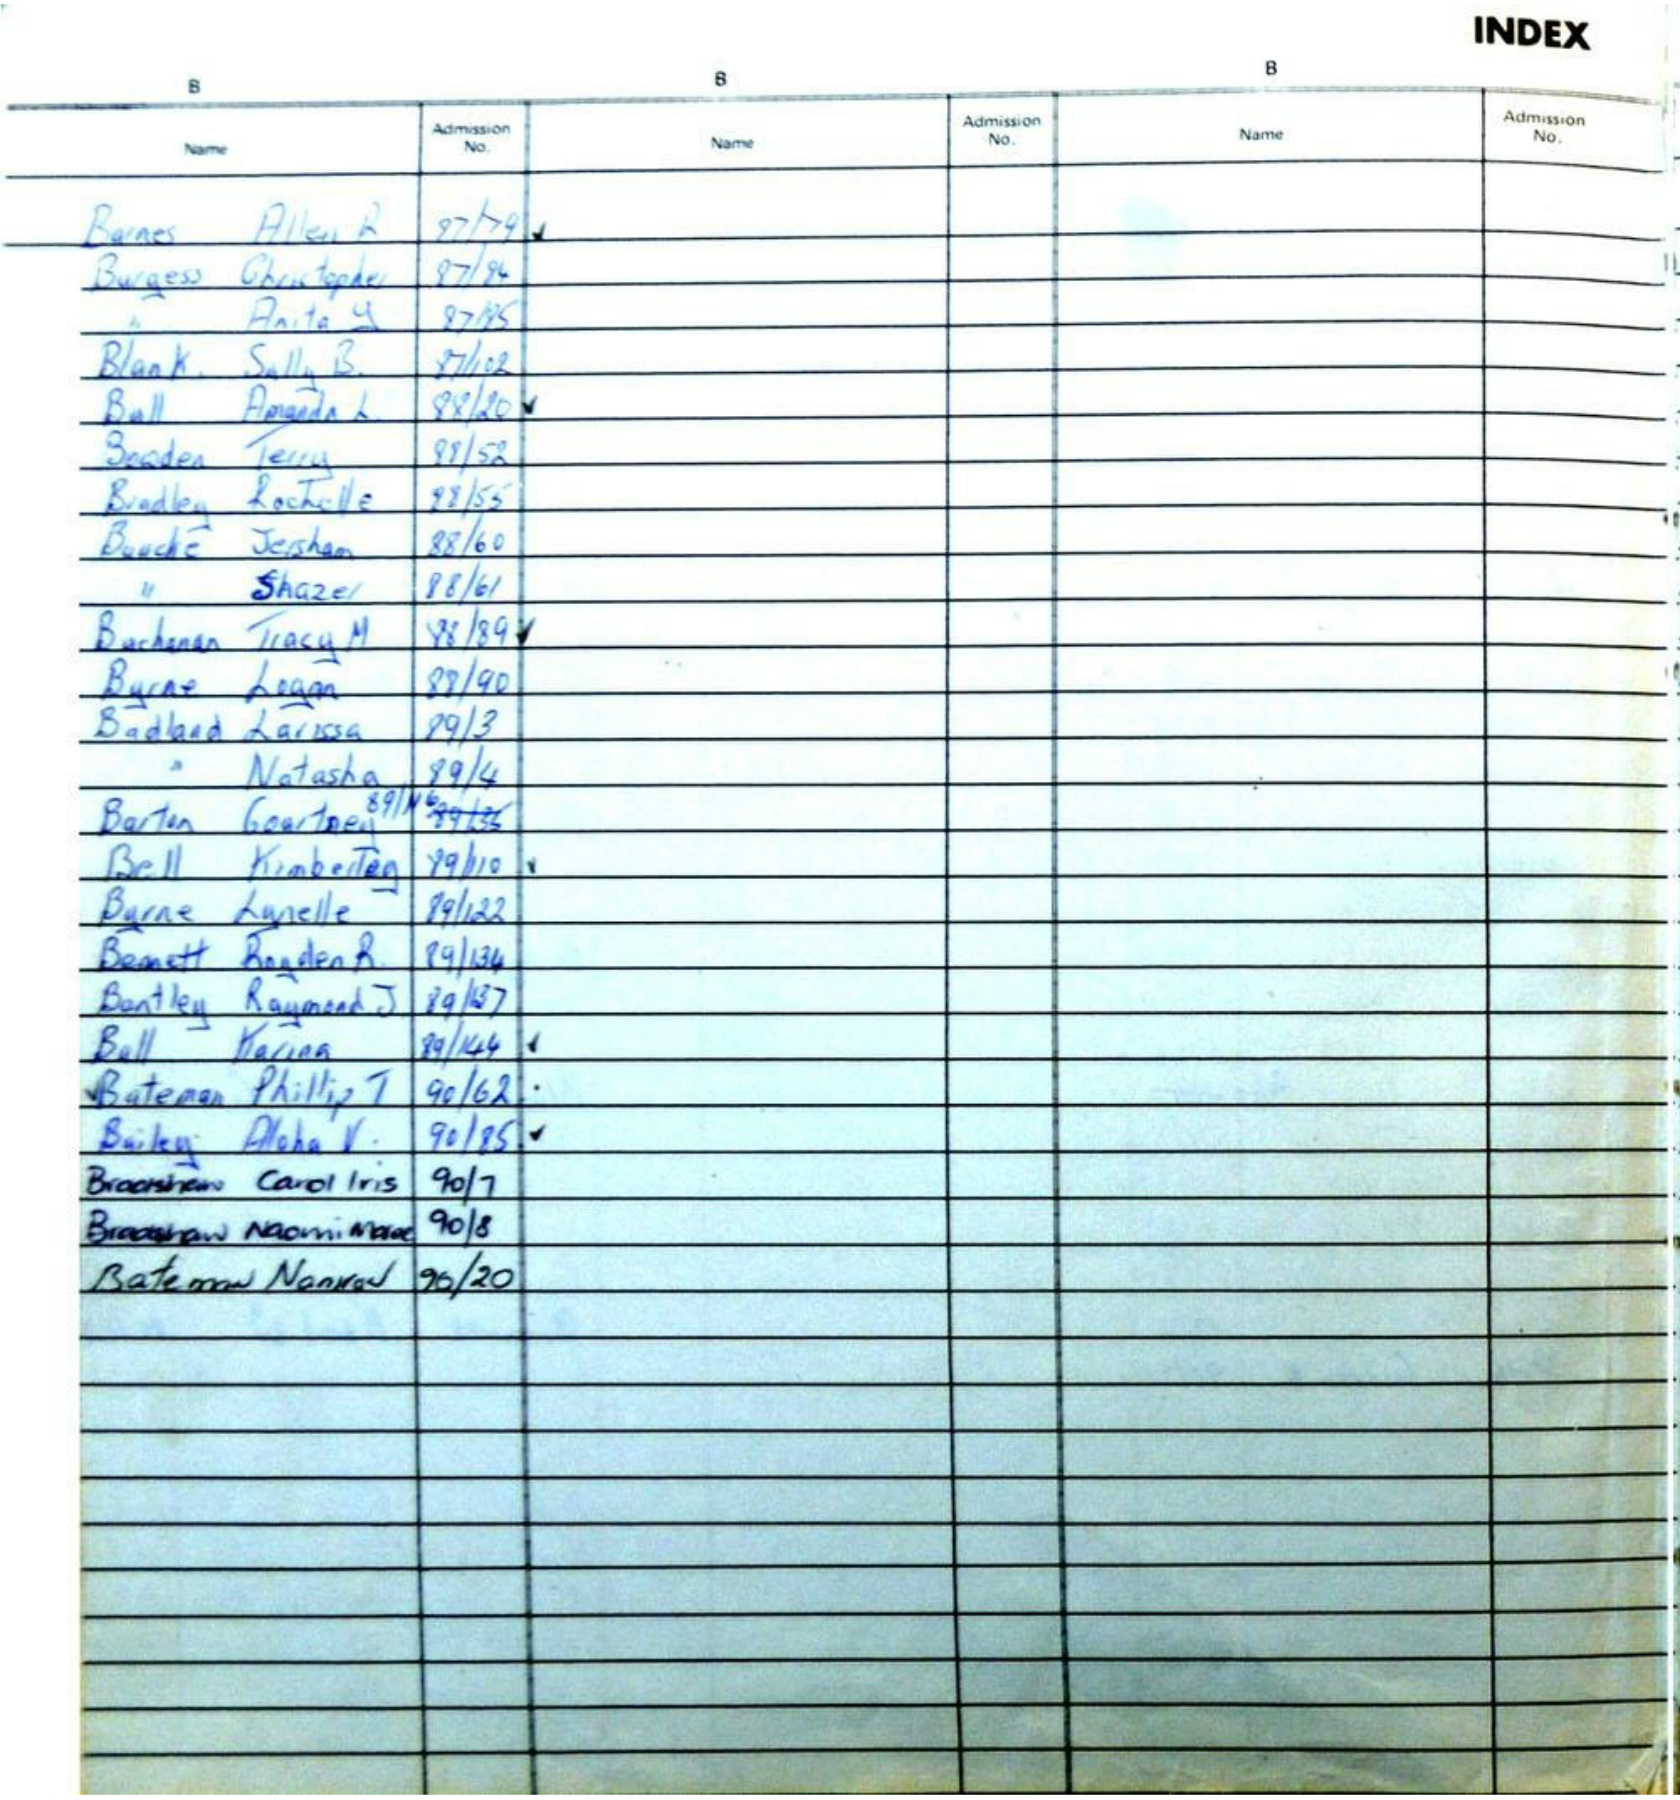 INDEX
B B B
Name Admission No. Name Admission No. Name Admission No.
Barnes Allen R 87/79 ✓
Burgess Christopher 87/84
" Anita Y 87/85
Blank. Sally B. 87/102
Ball Amanda L. 88/20 ✓
Terry 88/52
Bradley Rochelle 88/55
Jersham 88/60
" Shazer 88/61
Buchanan Tracy M 88/89 ✓
Byrne Logan 88/90
Badland Larissa 89/3
" Natasha 89/4
Barton Courtney 89/116
Bell Kimberley 89/110 ✓
Byrne Lynelle 89/122
Bennett Royden R. 89/134
Bentley Raymond J 89/137
Ball Karina 89/144 ✓
✓ Bateman Phillip T 90/62
Bailey Aloha V. 90/85 ✓
Bradshaw Carol Iris 90/7
Bradshaw Naomi 90/8
Bateman 90/20